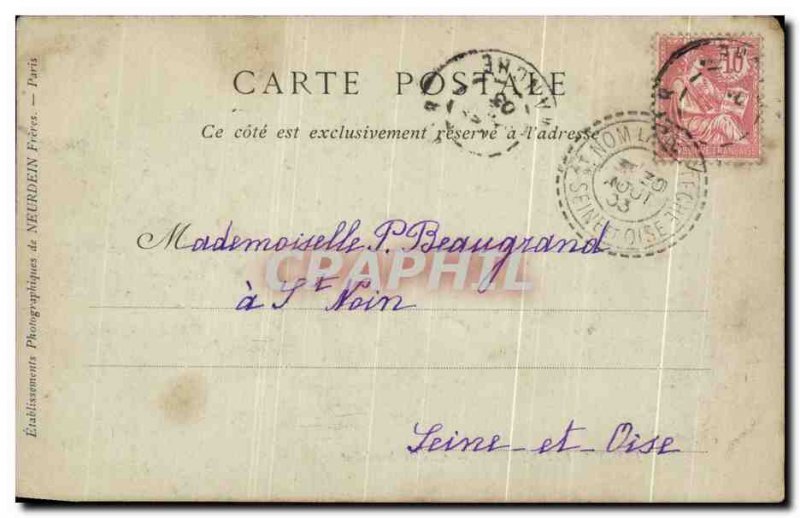 CARTE POSTALE
Ce côté est exclusivement réservé à l'adresse
Mademoiselle P. Beaugrand
à St Noin
Seine-et-Oise
Établissements Photographiques de NEURDEIN Frères. — Paris
ST NOM LA
SEINE ET OISE
30
AOUT
03
MANCHE
03
10
CPAPHIL